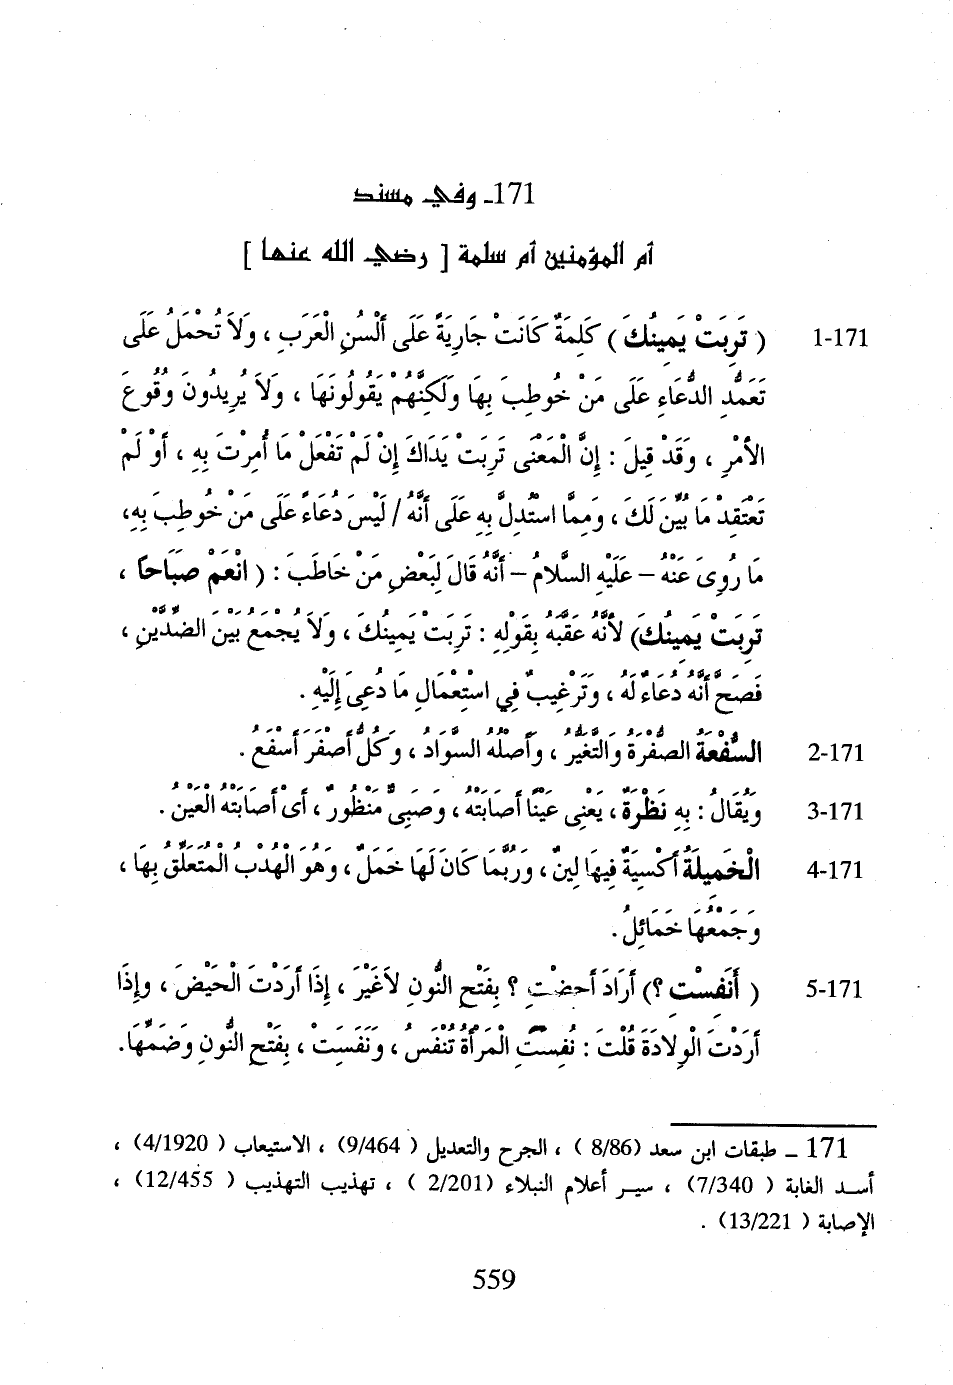 171ـ وفي مسند
أم المؤمنين أم سلمة [ رضي الله عنها ]
1-171 ( تَرِبَتْ يَمِينُكَ ) كَلِمَةٌ كَانَتْ جَارِيَةً عَلَى أَلْسُنِ الْعَرَبِ ، وَلاَ تُحْمَلُ عَلَى
تَعَمُّدِ الدُّعَاءِ عَلَى مَنْ خُوطِبَ بِهَا وَلَكِنَّهُمْ يَقُولُونَهَا ، وَلاَ يُرِيدُونَ وُقُوعَ
الأَمْرِ ، وَقَدْ قِيلَ : إِنَّ الْمَعْنَى تَرِبَتْ يَدَاكَ إِنْ لَمْ تَفْعَلْ مَا أُمِرْتَ بِهِ ، أَوْ لَمْ
تَعْتَقِدْ مَا بُيِّنَ لَكَ ، وَمِمَّا اسْتُدِلَّ بِهِ عَلَى أَنَّهُ / لَيْسَ دُعَاءً عَلَى مَنْ خُوطِبَ بِهِ،
مَا رُوِىَ عَنْهُ – عَلَيْهِ السَّلاَمُ – أَنَّهُ قَالَ لِبَعْضِ مَنْ خَاطَبَ : ( انْعَمْ صَبَاحاً ،
تَرِبَتْ يَمِينُكَ) لأَنَّهُ عَقَّبَهُ بِقَوْلِهِ : تَرِبَتْ يَمِينُكَ ، وَلاَ يُجْمَعُ بَيْنَ الضِّدَّيْنِ ،
فَصَحَّ أَنَّهُ دُعَاءٌ لَهُ ، وَتَرْغِيبٌ فِي اسْتِعْمَالِ مَا دُعِىَ إِلَيْهِ .
2-171 السُّفْعَةُ الصُّفْرَةُ وَالتَّغَيُّرُ ، وَأَصْلُهُ السَّوَادُ ، وَكُلُّ أَصْفَرَ أَسْفَعُ .
3-171 وَيُقَالُ : بِهِ نَظْرَةٌ ، يَعْنِى عَيْناً أَصَابَتْهُ ، وَصَبِيٌّ مَنْظُورٌ ، أَىْ أَصَابَتْهُ الْعَيْنُ .
4-171 الْخَمِيلَةُ أَكْسِيَةٌ فِيهَا لِينٌ ، وَرُبَّمَا كَانَ لَهَا خَمَلٌ ، وَهُوَ الْهُدْبُ الْمُتَعَلِّقُ بِهَا ،
وَجَمْعُهَا خَمَائِلُ .
5-171 ( أَنَفِسْتِ ؟) أَرَادَ أَحِضْتِ ؟ بِفَتْحِ النُّونِ لاَغَيْرَ ، إِذَا أَرَدْتَ الْحَيْضَ ، وَإِذَا
أَرَدْتَ الْوِلاَدَةَ قُلْتَ : نُفِسَتِ الْمَرْأَةُ تُنْفَسُ ، وَنَفِسَتْ ، بِفَتْحِ النُّونِ وَضَمِّهَا.
171 ـ طبقات ابن سعد (8/86 ) ، الجرح والتعديل ( 9/464) ، الاستيعاب ( 4/1920) ،
أسد الغابة ( 7/340) ، سير أعلام النبلاء (2/201 ) ، تهذيب التهذيب ( 12/455) ،
الإصابة ( 13/221) .
559